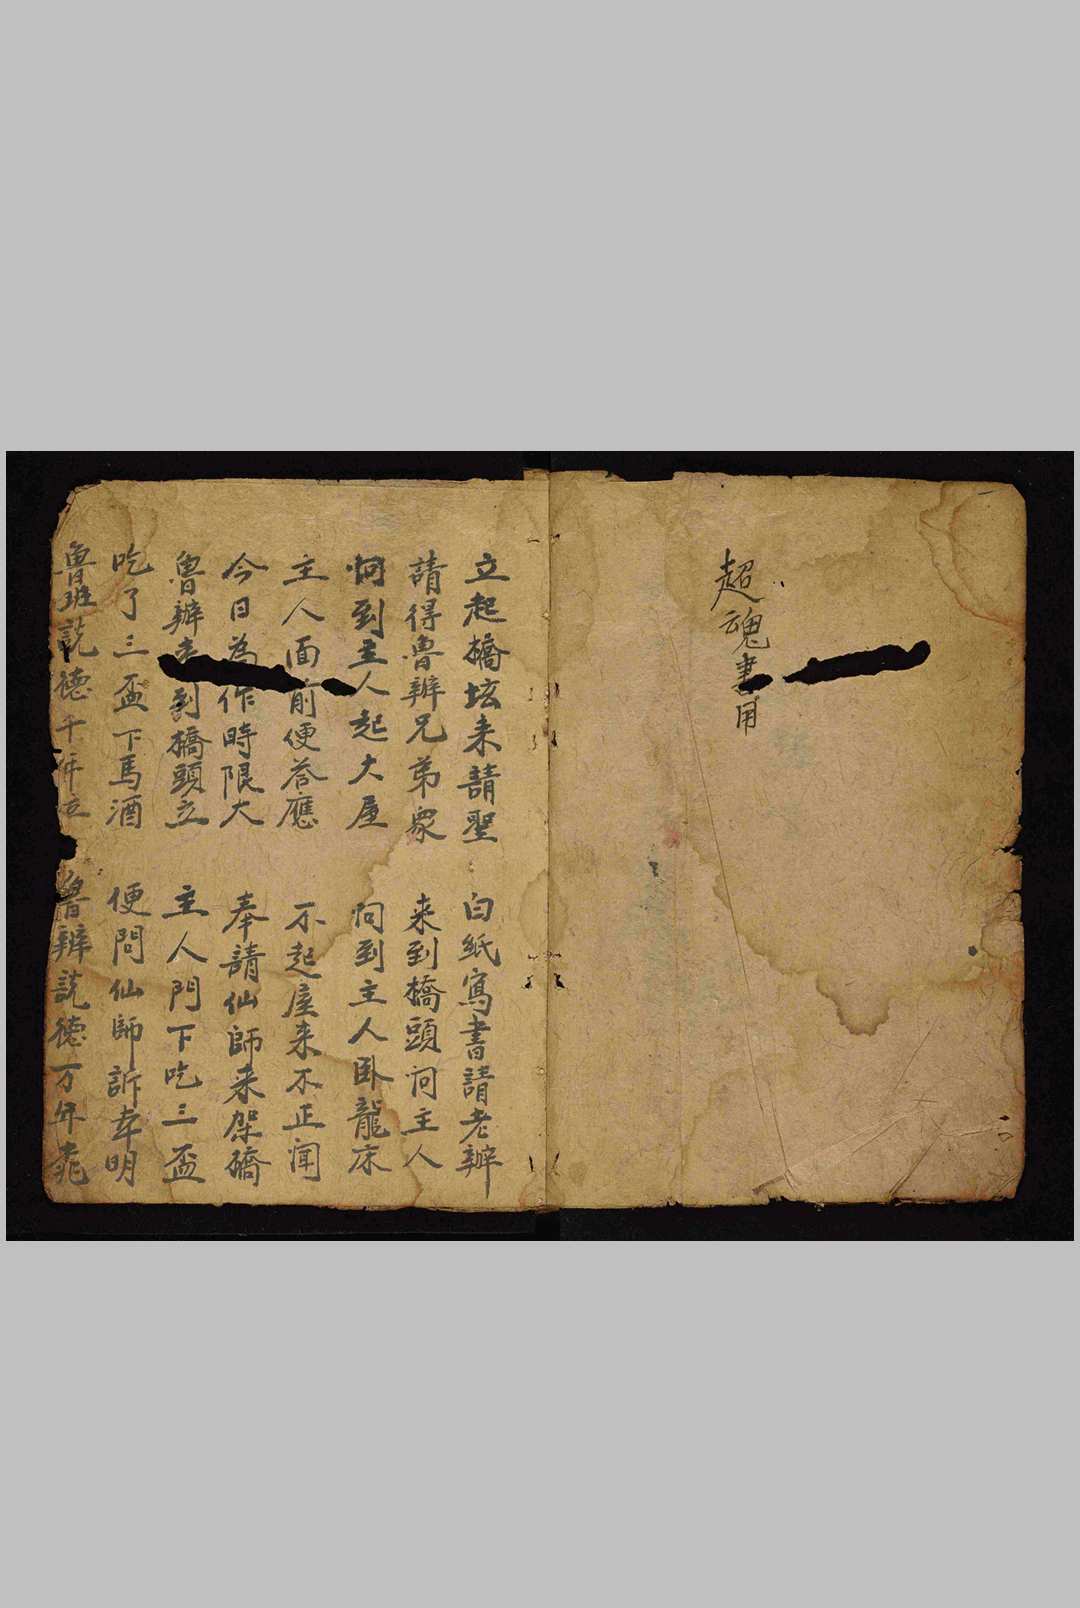 超魂書用
立起橋坛来請聖 白紙寫書請老辦
請得魯辦兄弟衆 来到橋頭问主人
问到主人起大屋 问到主人卧龍床
主人面前便答應 不起屋来不正闻
今日為作時限大 奉請仙師来架橋
魯辦到橋頭立 主人門下吃三盃
吃了三盃下馬酒 便問仙師訴幸明
魯班説德千年立 魯辦説德万年